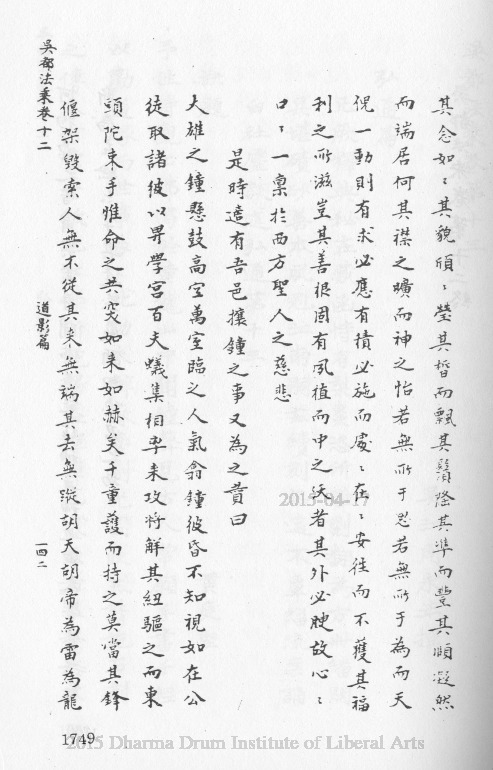 其念如〻其貌頎〻瑩其晳而飄其鬚隆其準而豐其頤凝然
而端居何其襟之曠而神之怡若無所于思若無所于為而天
倪一動則有求必應有積必施而處〻在〻安往而不獲其福
利之所滋豈其善根固有夙植而中之沃者其外必腴故心〻
口〻一稟於西方聖人之慈悲
是時遠有吾邑攘鐘之事又為之贊曰
大雄之鐘懸鼓高空萬室臨之人氣翕鐘彼昏不知視如在公
徒取諸彼以畀學宮百夫蟻集相率來攻將解其紐驅之而東
頭陀束手惟命之共突如來如赫矣千童護而持之莫當其鋒
偃架毀索人無不從其來無端其去無蹤胡天胡帝為雷為龍
吳都法乘卷十二
道影篇
一四二
1749
2015-04-17
2015 Dharma Drum Institute of Liberal Arts